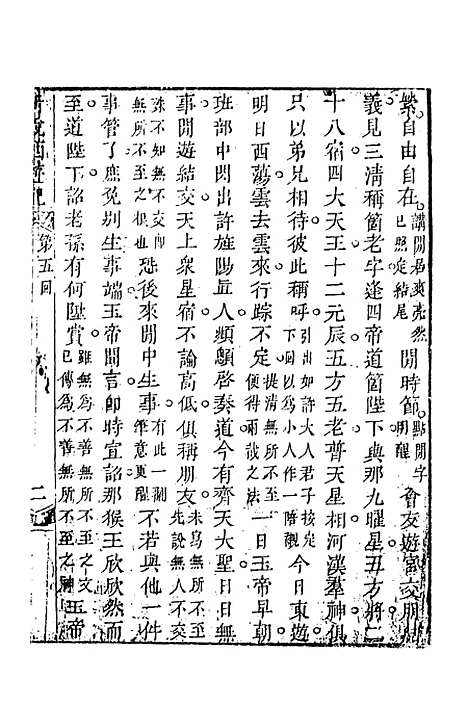 縈自由自在。講閒
已照定結尾 閒時節。點閒字明醒 會友遊宮交朋結
義見三清稱箇老字逢四帝道箇陛下與那九曜星五方將二
十八宿四大天王十二元辰五方五老普天星相河漢羣神俱
只以弟兄相待彼此稱呼。引出如許大人君子接定下回以爲小人作一陪襯 今日東遊
明日西蕩雲去雲來行踪不定。提清無所不至便得兩截之法 一日玉帝早朝
班部中閃出許旌陽眞人頫顖啓奏道今有齊天大聖日日無
事閒遊結交天上衆星宿不論高低俱稱朋友。未寫無所不至先說無人不交
殊不知無不交即無所不至之根也 恐後來閒中生事。有此一閒筆意更醒 不若與他一件
事管了庶免別生事端玉帝聞言即時宣詔那猴王欣欣然而
至道陛下詔老孫有何陞賞。雖無爲不善無所不至之文已傳爲不善無所不至之神 玉帝
新說西遊記 第五回 二